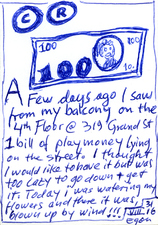 C R
100 100
100
A Few days ago I saw
from my balcony on the
4th Floor @ 319 Grand St
1 bill of play money lying
on the street. I thought
I would like to have it but was
too lazy to go down + get
it. Today i was watering my
flowers and there it was,
blown up by wind!!!
VIII 31
16
egon